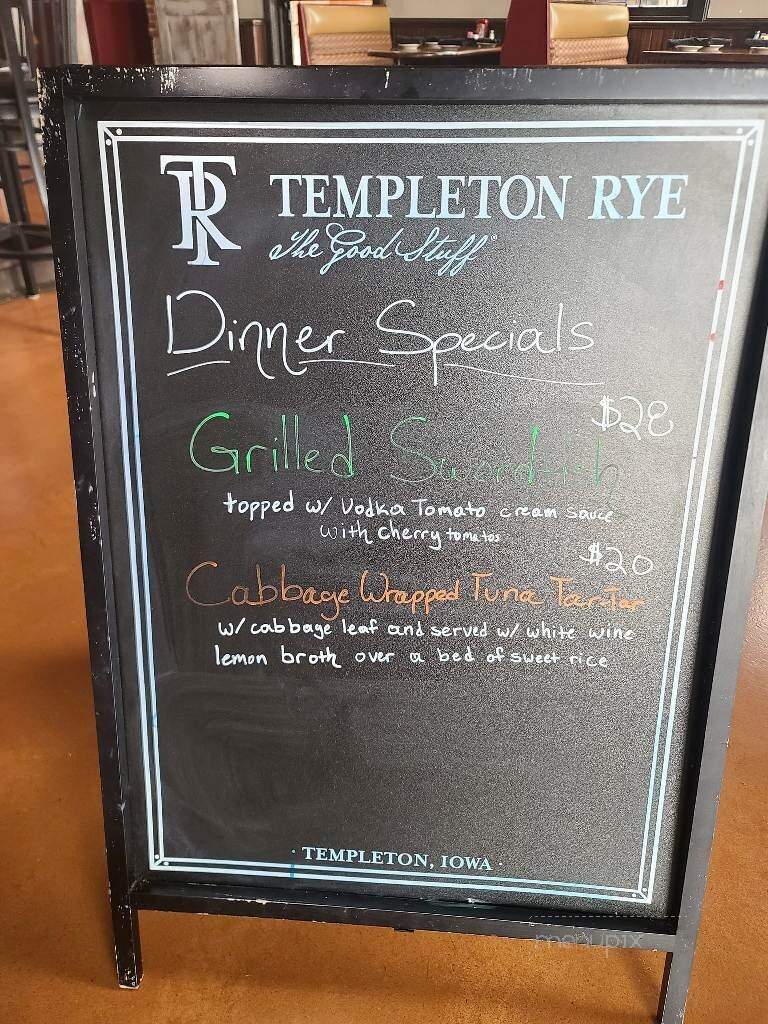 TR TEMPLETON RYE
The Good Stuff
Dinner Specials
$28
Grilled Swordfish
topped w/ Vodka Tomato cream sauce
with cherry tomatos
$20
Cabbage Wrapped Tuna Tartar
w/ cabbage leaf and served w/ white wine
lemon broth over a bed of sweet rice
· TEMPLETON, IOWA ·
menupix